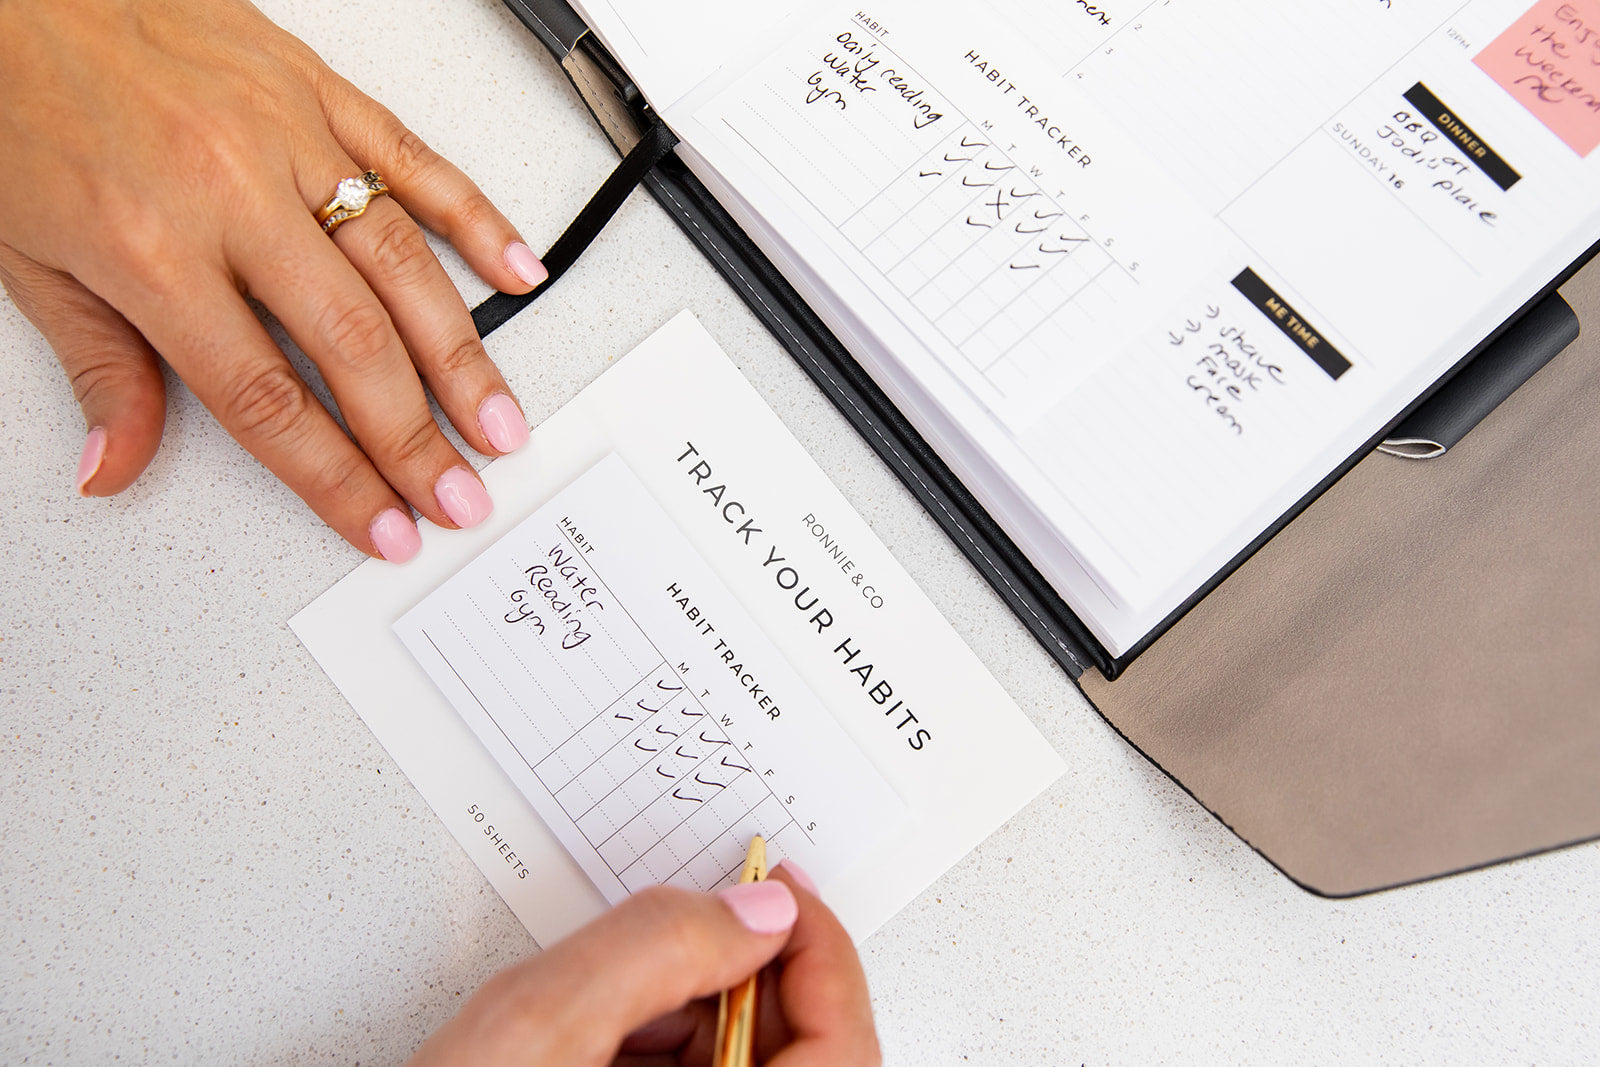 HABIT
Daily reading
Water
Gym
HABIT TRACKER
M T W T F S S
1
2
3
4
12PM
Enjoy
the
Weekend
DINNER
BBQ at
Jodi's place
SUNDAY 16
ME TIME
→ shave
→ mask
→ Face
cream
RONNIE & CO
TRACK YOUR HABITS
HABIT TRACKER
HABIT
Water
Reading
Gym
M T W T F S S
50 SHEETS